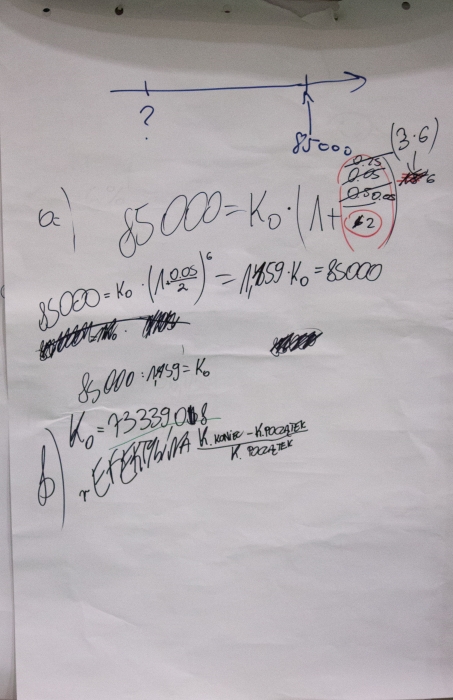 ?
85000
(3·6)
a) 85000 = K₀ · (1 + 0.05 / 2) 6
85000 = K₀ · (1+ 0.05/2)⁶ = 1,159·K₀ = 85000
85000 : 1,159 = K₀
K₀ = 73339018
b) r EFEKTYWNA K.KONIEC - K.POCZĄTEK / K. POCZĄTEK